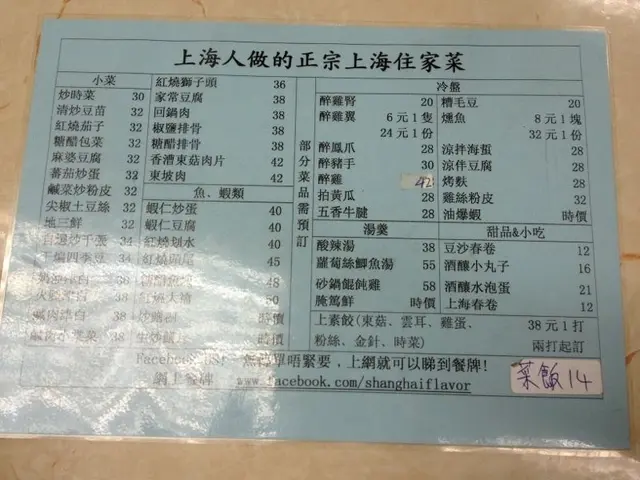 上海人做的正宗上海住家菜
小菜
炒時菜 30
清炒豆苗 32
紅燒茄子 32
糖醋包菜 32
麻婆豆腐 32
蕃茄炒蛋 32
鹹菜炒粉皮 32
尖椒土豆絲 32
地三鮮 32
34
干煸四季豆 34
38
38
38
38
紅燒獅子頭 36
家常豆腐 38
回鍋肉 38
椒鹽排骨 38
糖醋排骨 38
香漕東菇肉片 42
東坡肉 42
魚、蝦類
蝦仁炒蛋 40
蝦仁豆腐 40
紅燒划水 40
紅燒頭尾 45
48
50
時價
時價
部分菜品需預訂
冷盤
醉雞腎 20
醉雞翼 6元1隻
24元1份
醉鳳爪 28
醉豬手 30
醉雞 42
拍黃瓜 28
五香牛腱 28
糟毛豆 20
燻魚 8元1塊
32元1份
涼拌海蜇 28
涼伴豆腐 28
烤麩 28
雞絲粉皮 32
油爆蝦 時價
湯羹
酸辣湯 38
蘿蔔絲鯽魚湯 55
砂鍋餛飩雞 58
腌篤鮮 時價
甜品&小吃
豆沙春卷 12
酒釀小丸子 16
酒釀水泡蛋 21
上海春卷 12
上素餃(東菇、雲耳、雞蛋、 38元1打
粉絲、金針、時菜) 兩打起訂
無傳單唔緊要，上網就可以睇到餐牌!
網上餐牌 www.facebook.com/shanghaiflavor
菜飯14